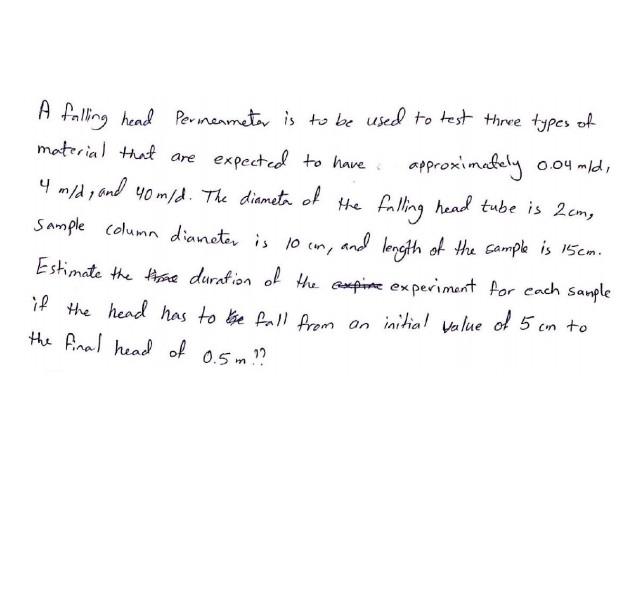 A falling head Permeameter is to be used to test three types of
material that are expected to have approximately 0.04 m/d,
4 m/d, and 40 m/d. The diameter of the falling head tube is 2 cm,
Sample column diameter is 10 cm, and length of the sample is 15 cm.
Estimate the duration of the experiment for each sample
if the head has to fall from an initial value of 5 cm to
the final head of 0.5 m ??